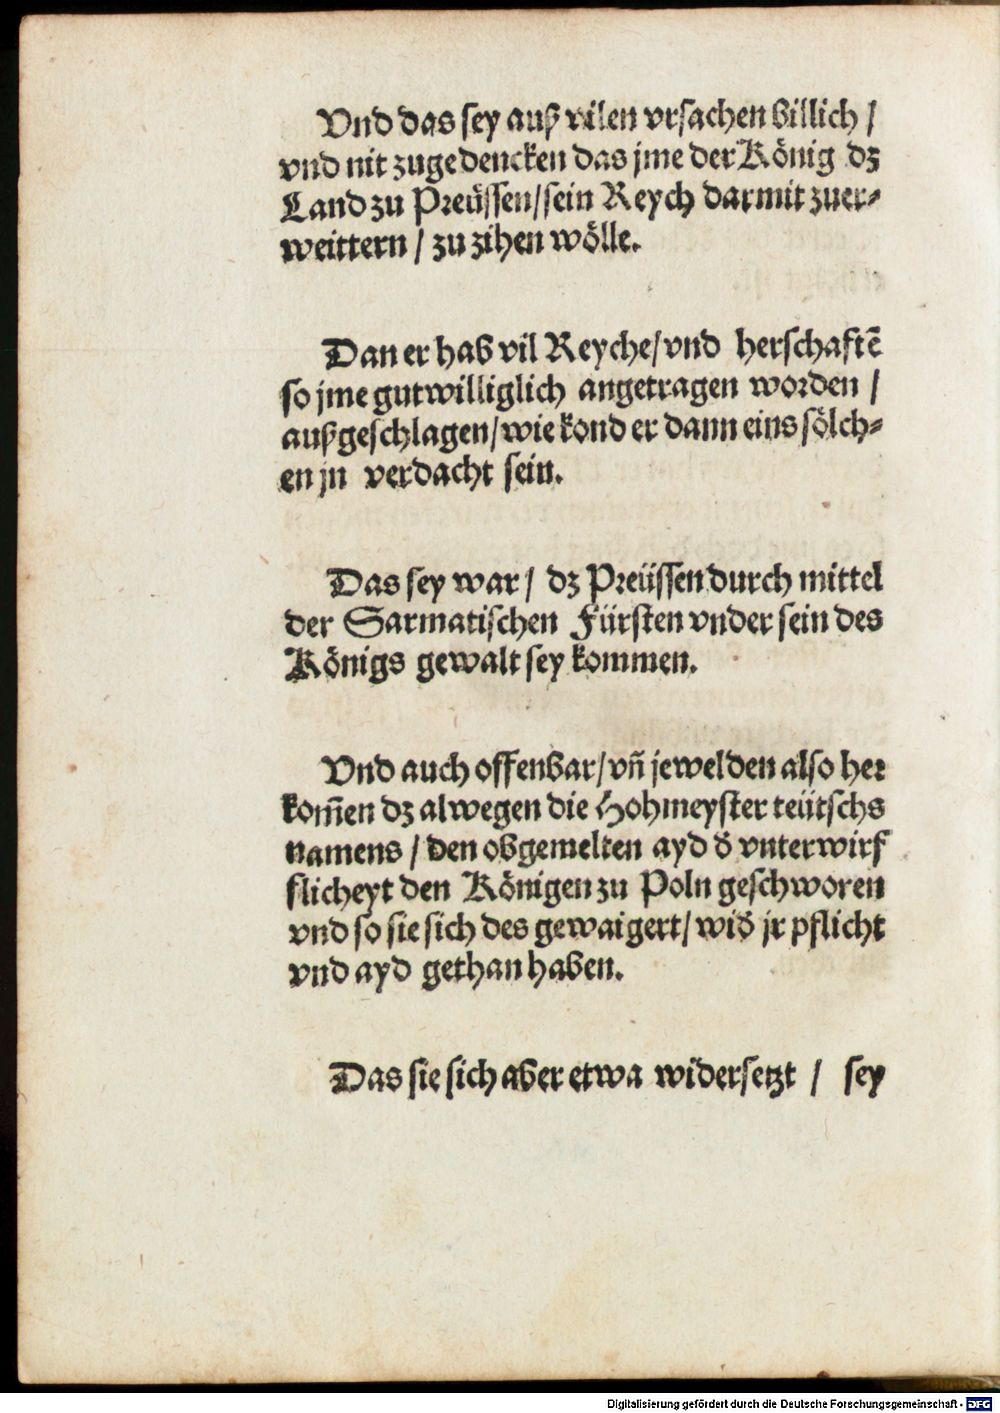 Vnd das sey auß vilen vrsachen billich /
vnd nit zugedencken das jme der König dz
Land zu Preüssen/sein Reych darmit zuer⸗
weittern / zu zihen wölle.
Dan er hab vil Reyche/vnd herschaftē
so jme gutwilliglich angetragen worden /
außgeschlagen/wie kond er dann eins sölch⸗
en jn verdacht sein.
Das sey war / dz Preüssen durch mittel
der Sarmatischen Fürsten vnder sein des
Königs gewalt sey kommen.
Vnd auch offenbar/vñ jewelden also her
kom̄en dz alwegen die Hohmeyster teütschs
namens / den obgemelten ayd d̄ vnterwirf
flicheyt den Königen zu Poln geschworen
vnd so sie sich des gewaigert/wid̄ jr pflicht
vnd ayd gethan haben.
Das sie sich aber etwa widersetzt / sey
Digitalisierung gefördert durch die Deutsche Forschungsgemeinschaft - DFG